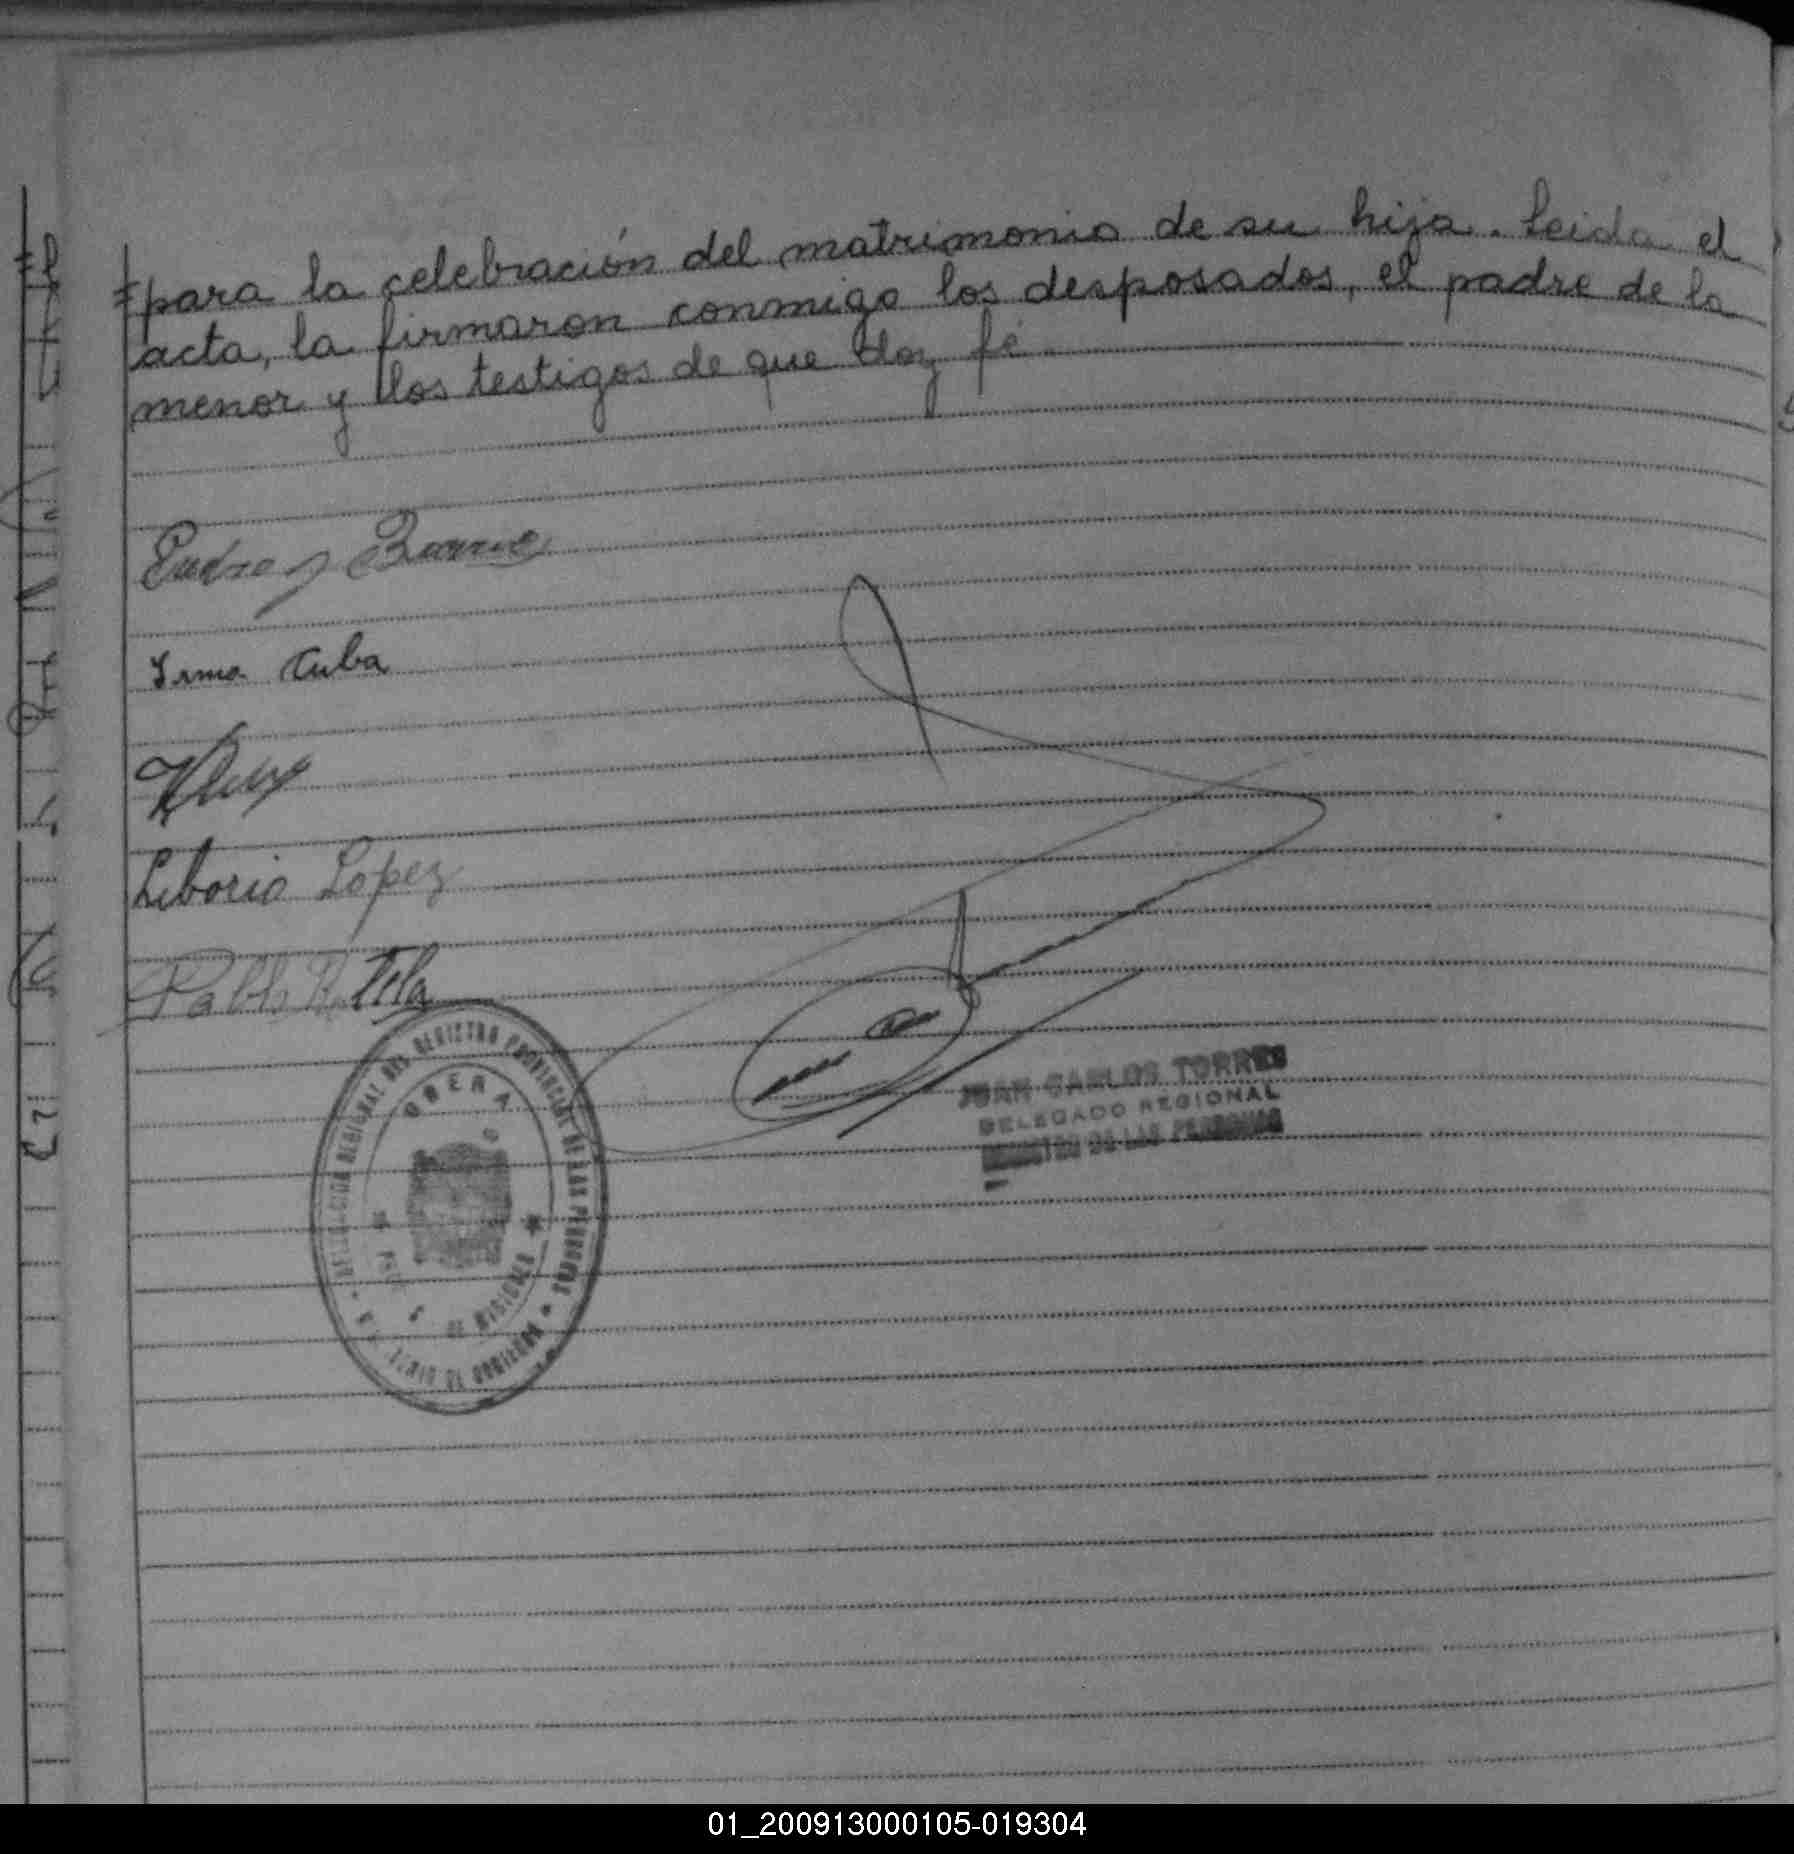 para la celebración del matrimonio de su hija. Leida el
acta, la firmaron conmigo los desposados, el padre de la
menor y los testigos de que doy fé
Irma Cuba
Liborio Lopez
Pablo
DELEGACION REGIONAL DEL REGISTRO PROVINCIAL DE LAS PERSONAS
OBERA
DE MISIONES
MINISTERIO DE GOBIERNO
JUAN CARLOS TORRES
DELEGADO REGIONAL
REGISTRO DE LAS PERSONAS
01_200913000105-019304